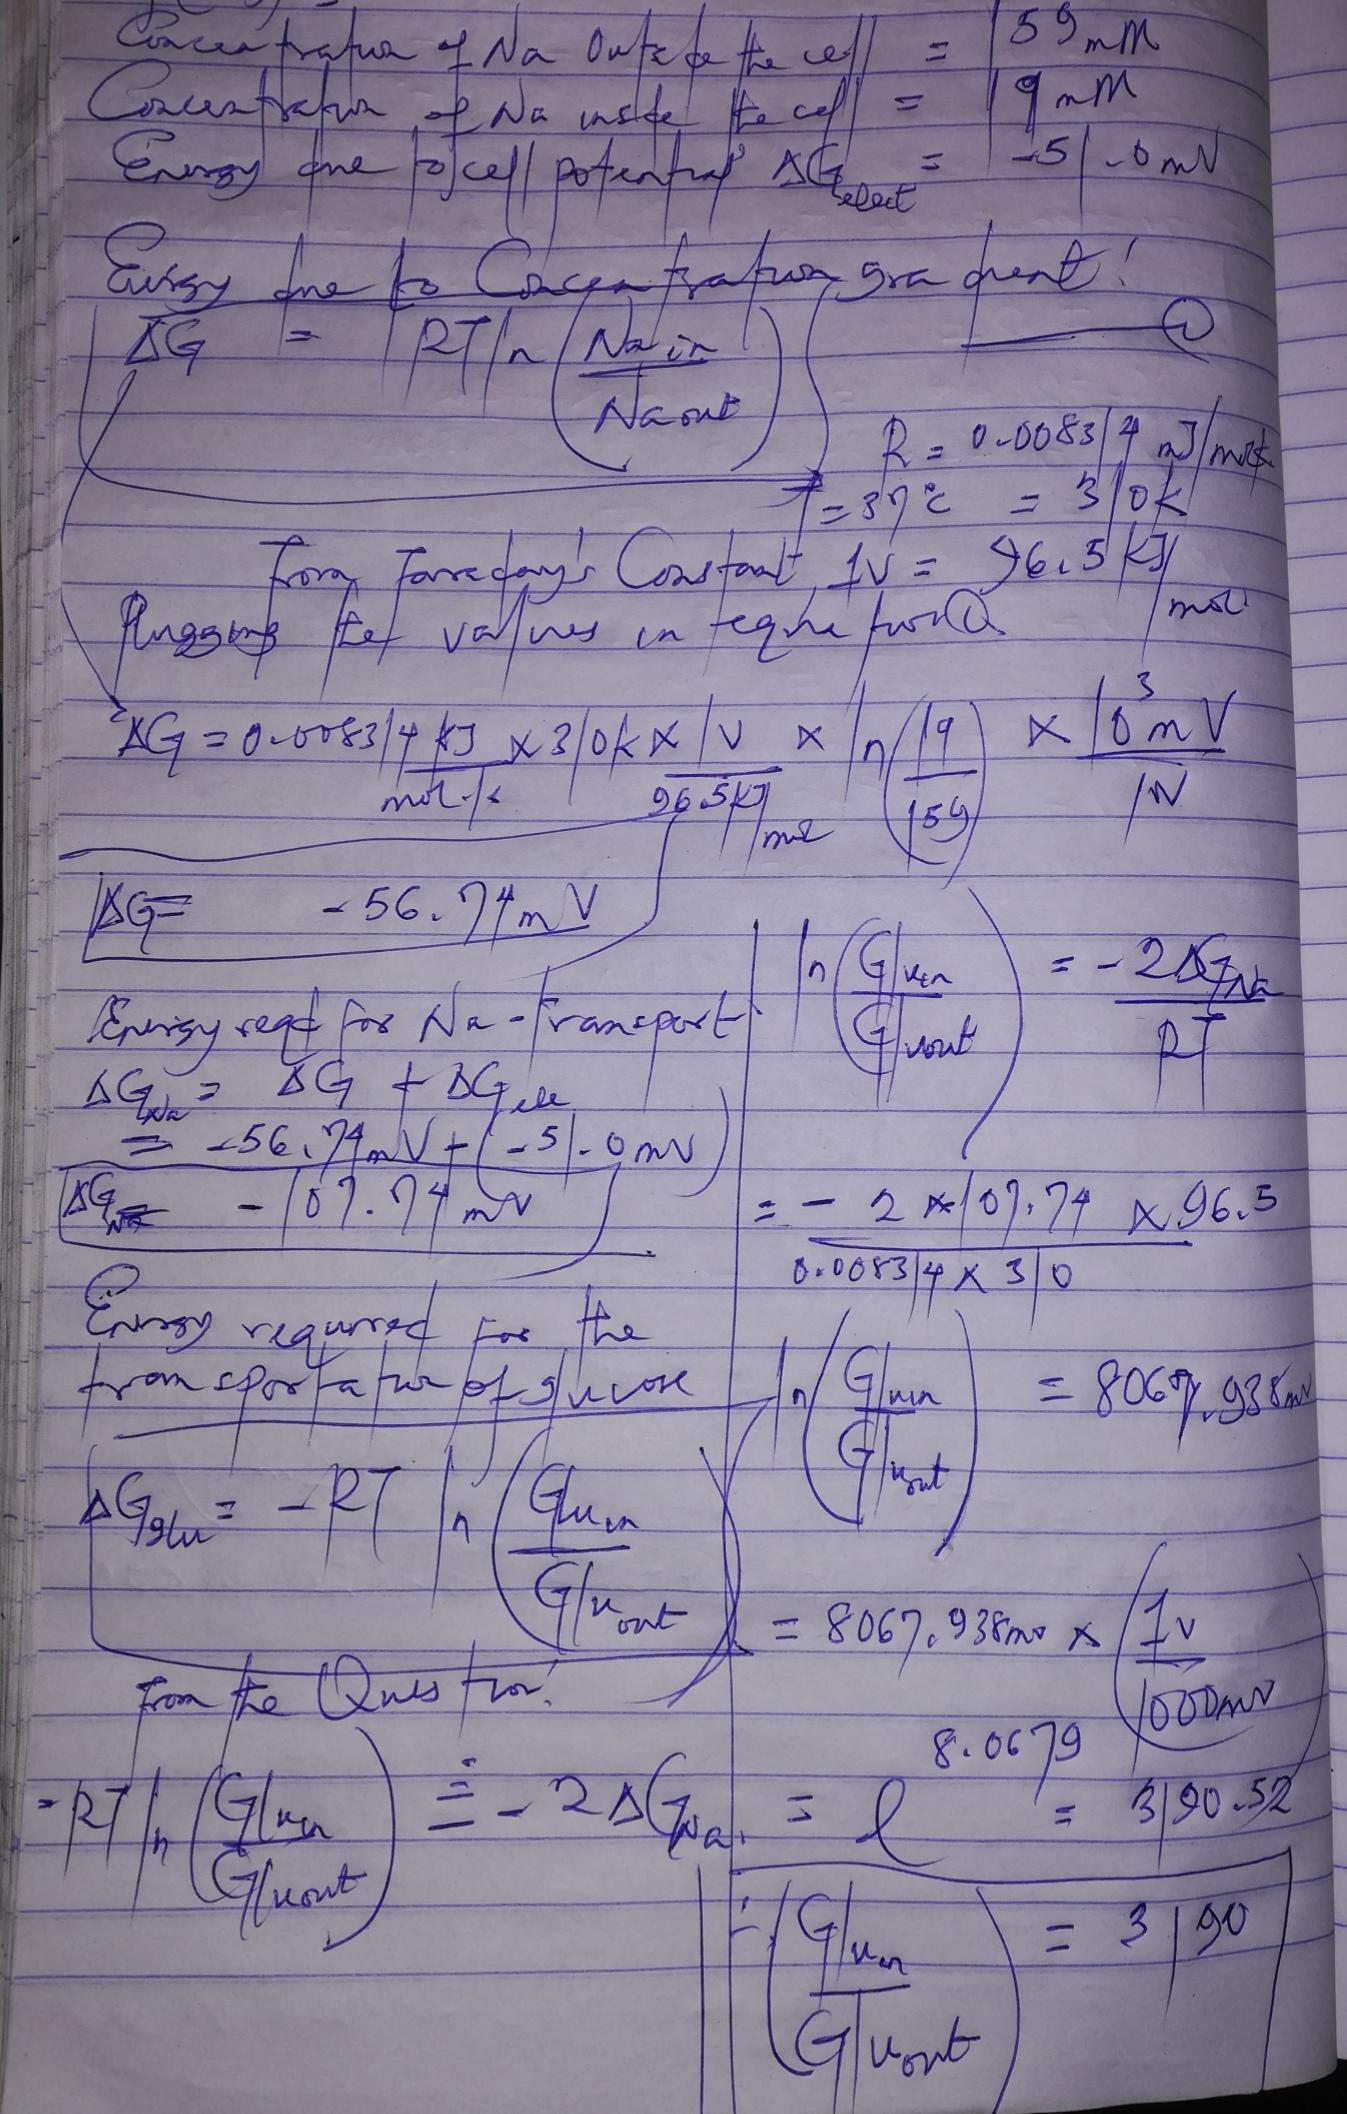 Concentration of Na Outside the cell = 159 mM
Concentration of Na inside the cell = 19 mM
Energy due to cell potential ΔGelect = -51.0 mV
Energy due to Concentration gradient!
ΔG = RT ln (Na in / Na out) ①
R = 0.008314 mJ/molk
T = 37°C = 310K
From Faraday's Constant, 1V = 96.5 KJ/mol
Plugging the values in equation ①
ΔG = 0.008314 KJ/mol.k x 310k x 1V/96.5KJ/mol x ln (19/159) x 10³mV/1V
ΔG = -56.74mV
Energy reqd for Na-transport
ΔGNa = ΔG + ΔGele
= -56.74mV + (-51.0mV)
ΔGNa = -107.74mV
Energy required for the
transportation of glucose
ΔGglu = -RT ln (Gluin / Gluout)
From the Question!
-RT ln (Gluin / Gluout) = -2ΔGNa
ln (Gluin / Gluout) = -2ΔGNa / RT
= - 2 x 107.74 x 96.5 / 0.008314 x 310
ln (Gluin / Gluout) = 8067.938mv
= 8067.938mv x (1v / 1000mv)
= e^8.0679 = 3190.52
∴ (Gluin / Gluout) = 3190